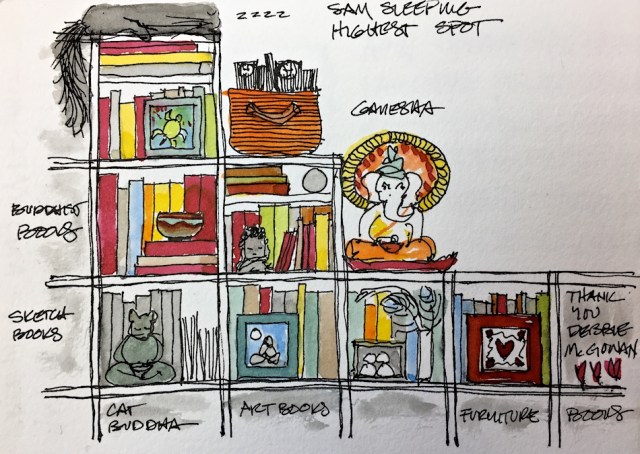 ZZZZ
SAM SLEEPING
HIGHEST SPOT
GANESHA
BUDDHIST
BOOKS
SKETCH
BOOKS
THANK
YOU
DEBBIE
McGOWAN
CAT
BUDDHA
ART BOOKS
FURNITURE
BOOKS